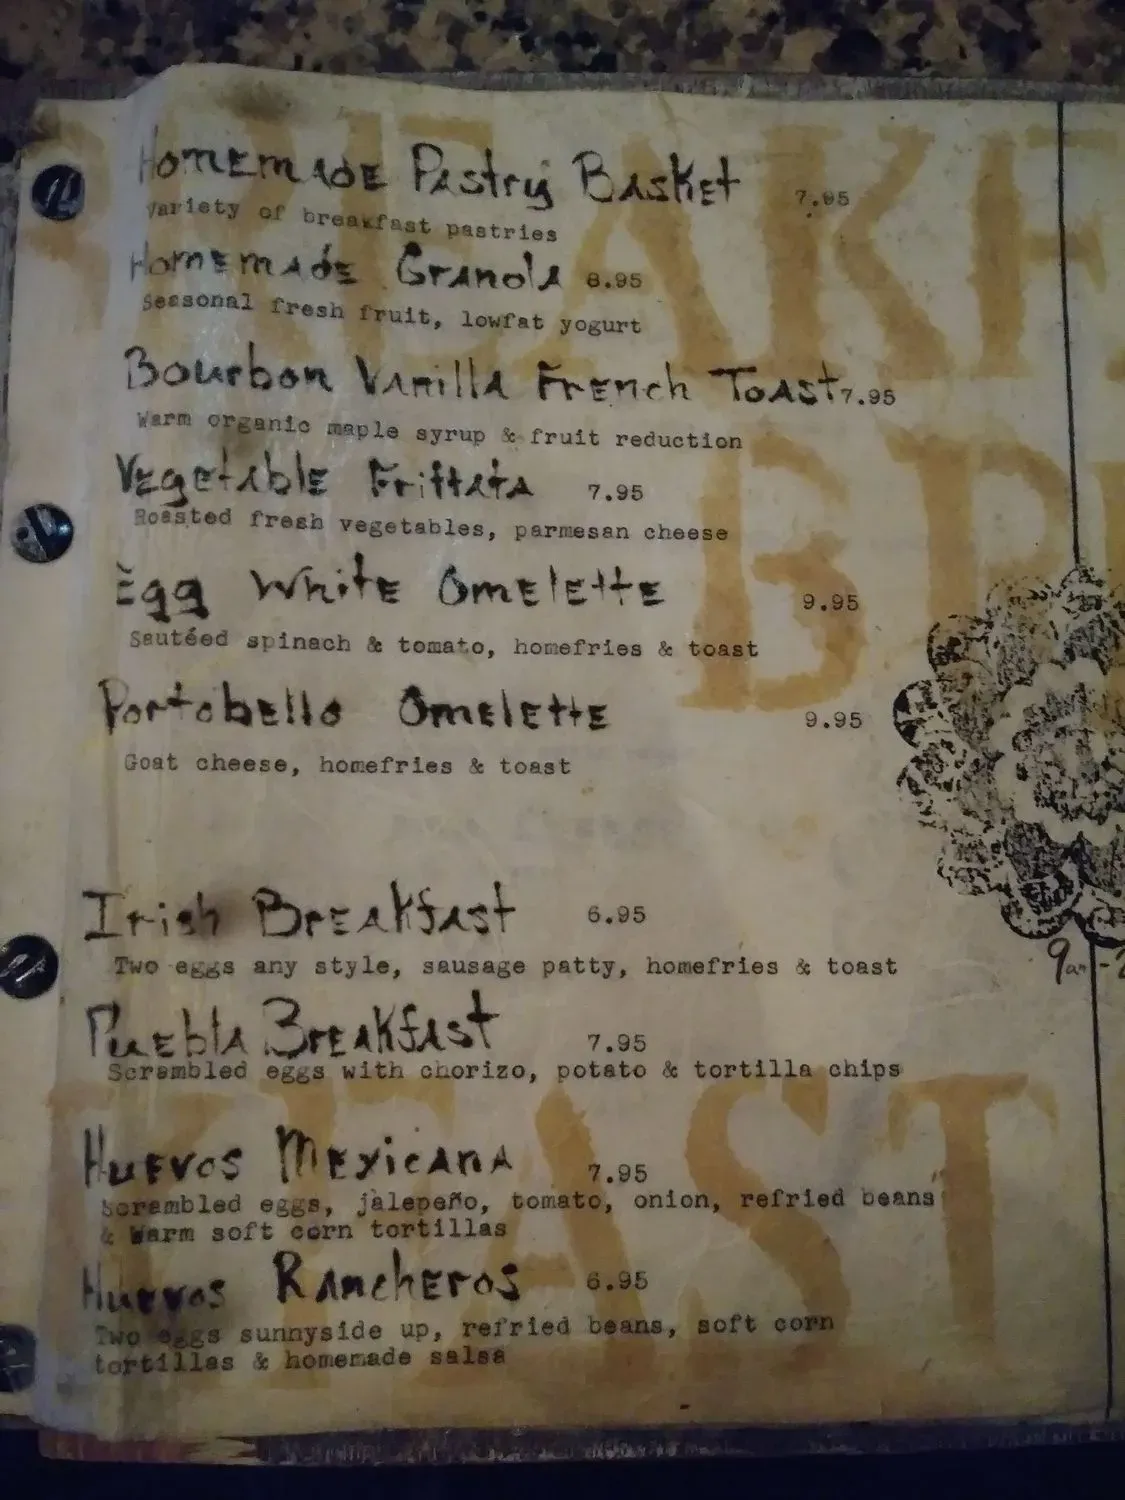 BREAKF
Homemade Pastry Basket 7.95
Variety of breakfast pastries
Homemade Granola 8.95
Seasonal fresh fruit, lowfat yogurt
Bourbon Vanilla French Toast 7.95
Warm organic maple syrup & fruit reduction
Vegetable Frittata 7.95
Roasted fresh vegetables, parmesan cheese
Egg White Omelette 9.95
Sautéed spinach & tomato, homefries & toast
Portobello Omelette 9.95
Goat cheese, homefries & toast
Irish Breakfast 6.95
Two eggs any style, sausage patty, homefries & toast
9am-2
Puebla Breakfast 7.95
Scrambled eggs with chorizo, potato & tortilla chips
Huevos Mexicana 7.95
Scrambled eggs, jalepeño, tomato, onion, refried beans
& Warm soft corn tortillas
Huevos Rancheros 6.95
Two eggs sunnyside up, refried beans, soft corn
tortillas & homemade salsa